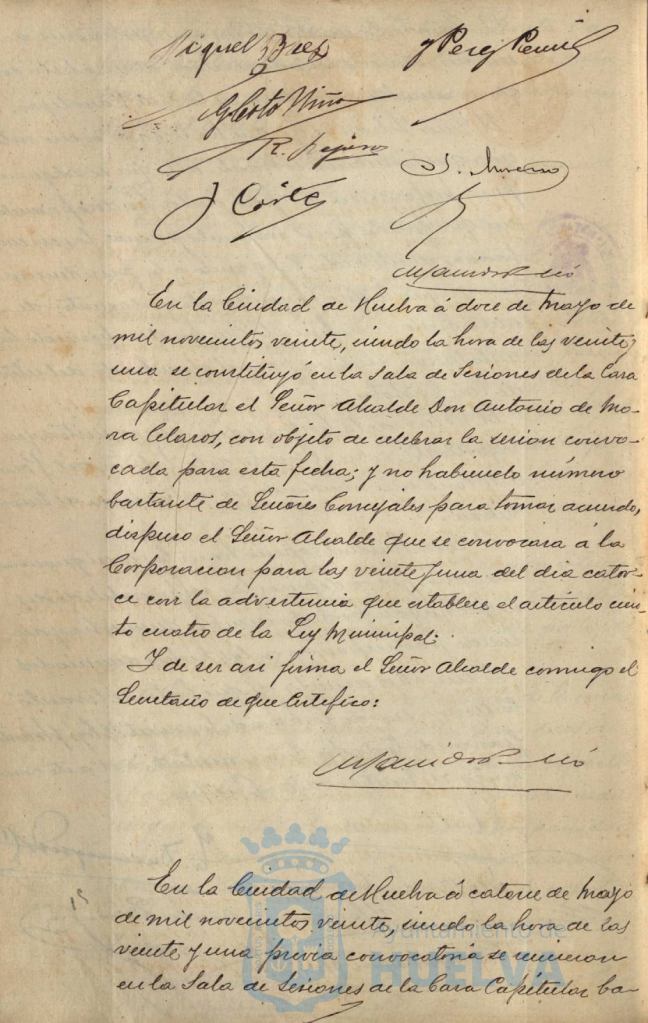 Miguel Báez
y Perez
Gilberto Niño
R.
J. Moreno
J Cortés
En la Ciudad de Huelva á doce de Mayo de
mil novecintos veinte, siendo la hora de las veinte y
una se constituyó en la Sala de Sesiones de la Casa
Capitular el Señor Alcalde Don Antonio de Mo-
ra Claros, con objeto de celebrar la sesion convo-
cada para esta fecha; y no habiendo número
bastante de Señores Concejales para tomar acuerdo,
dispuso el Señor Alcalde que se convocara á la
Corporacion para las veinte y una del dia cator-
ce con la advertencia que establece el artículo cien-
to cuatro de la Ley Municipal.
Y de ser asi firma el Señor Alcalde conmigo el
Secretario de que Certifico:
15
En la Ciudad de Huelva á catorce de Mayo
de mil novecintos veinte, siendo la hora de las
veinte y una previa convocatoria se reunieron
en la Sala de Sesiones de la Casa Capitular ba-
Ayuntamiento de
HUELVA